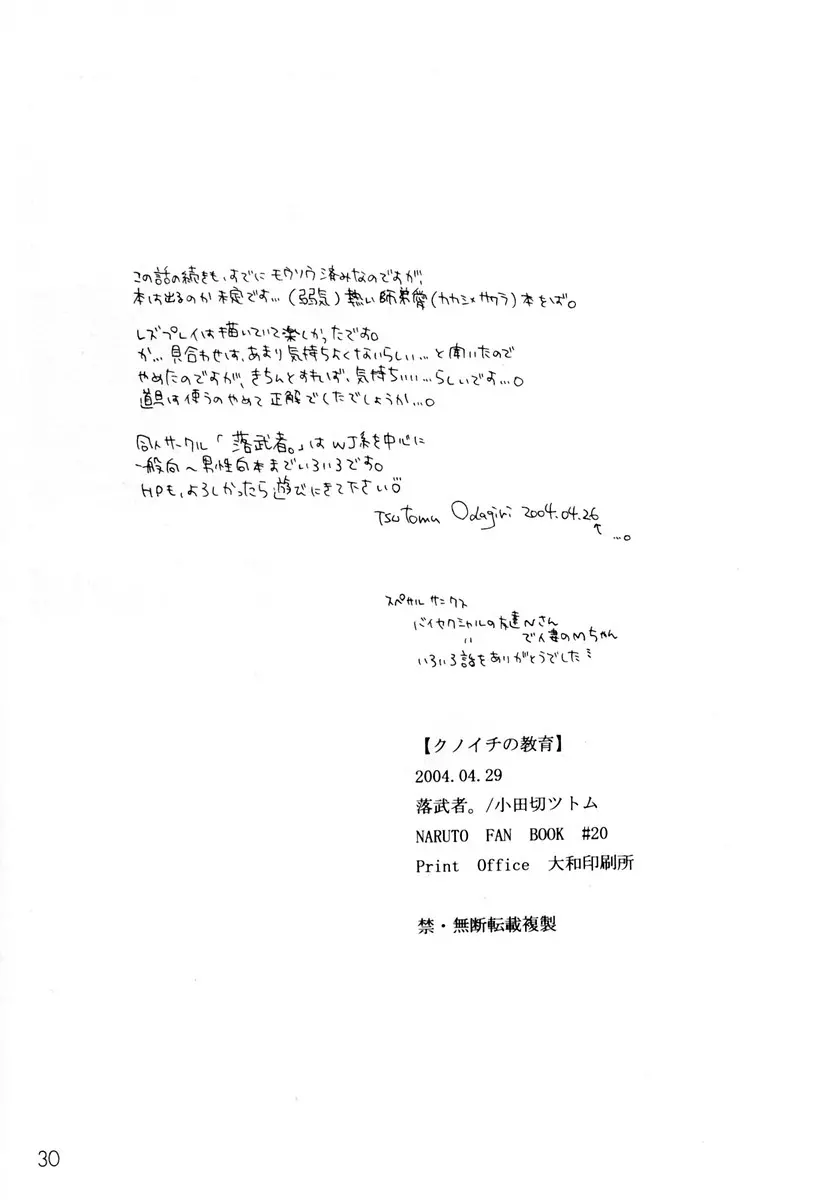 この話の続きも、すでにモウソウ済みなのですが、
本は出るのか未定です…(弱気)熱い師弟愛(カカシ×サクラ)本をば。
レズプレイは描いていて楽しかったです。
か…見合わせは、あまり気持ちよくないらしい…と聞いたので
やめたのですが、きちんとすれば、気持ちいい…らしいです…。
道具は使うのやめて正解でしたでしょうか…。
同人サークル「落武者。」はWJ系を中心に
一般向〜男性向本までいろいろです。
HPも、よろしかったら遊びにきて下さい
Tsutomu Odagiri 2004.04.26
↑…。
スペサルサンクス
バイセクシャルの友達Nさん
〃 で人妻のMちゃん
いろいろ話をありがとうでした
【クノイチの教育】
2004.04.29
落武者。/小田切ツトム
NARUTO FAN BOOK #20
Print Office 大和印刷所
禁・無断転載複製
30